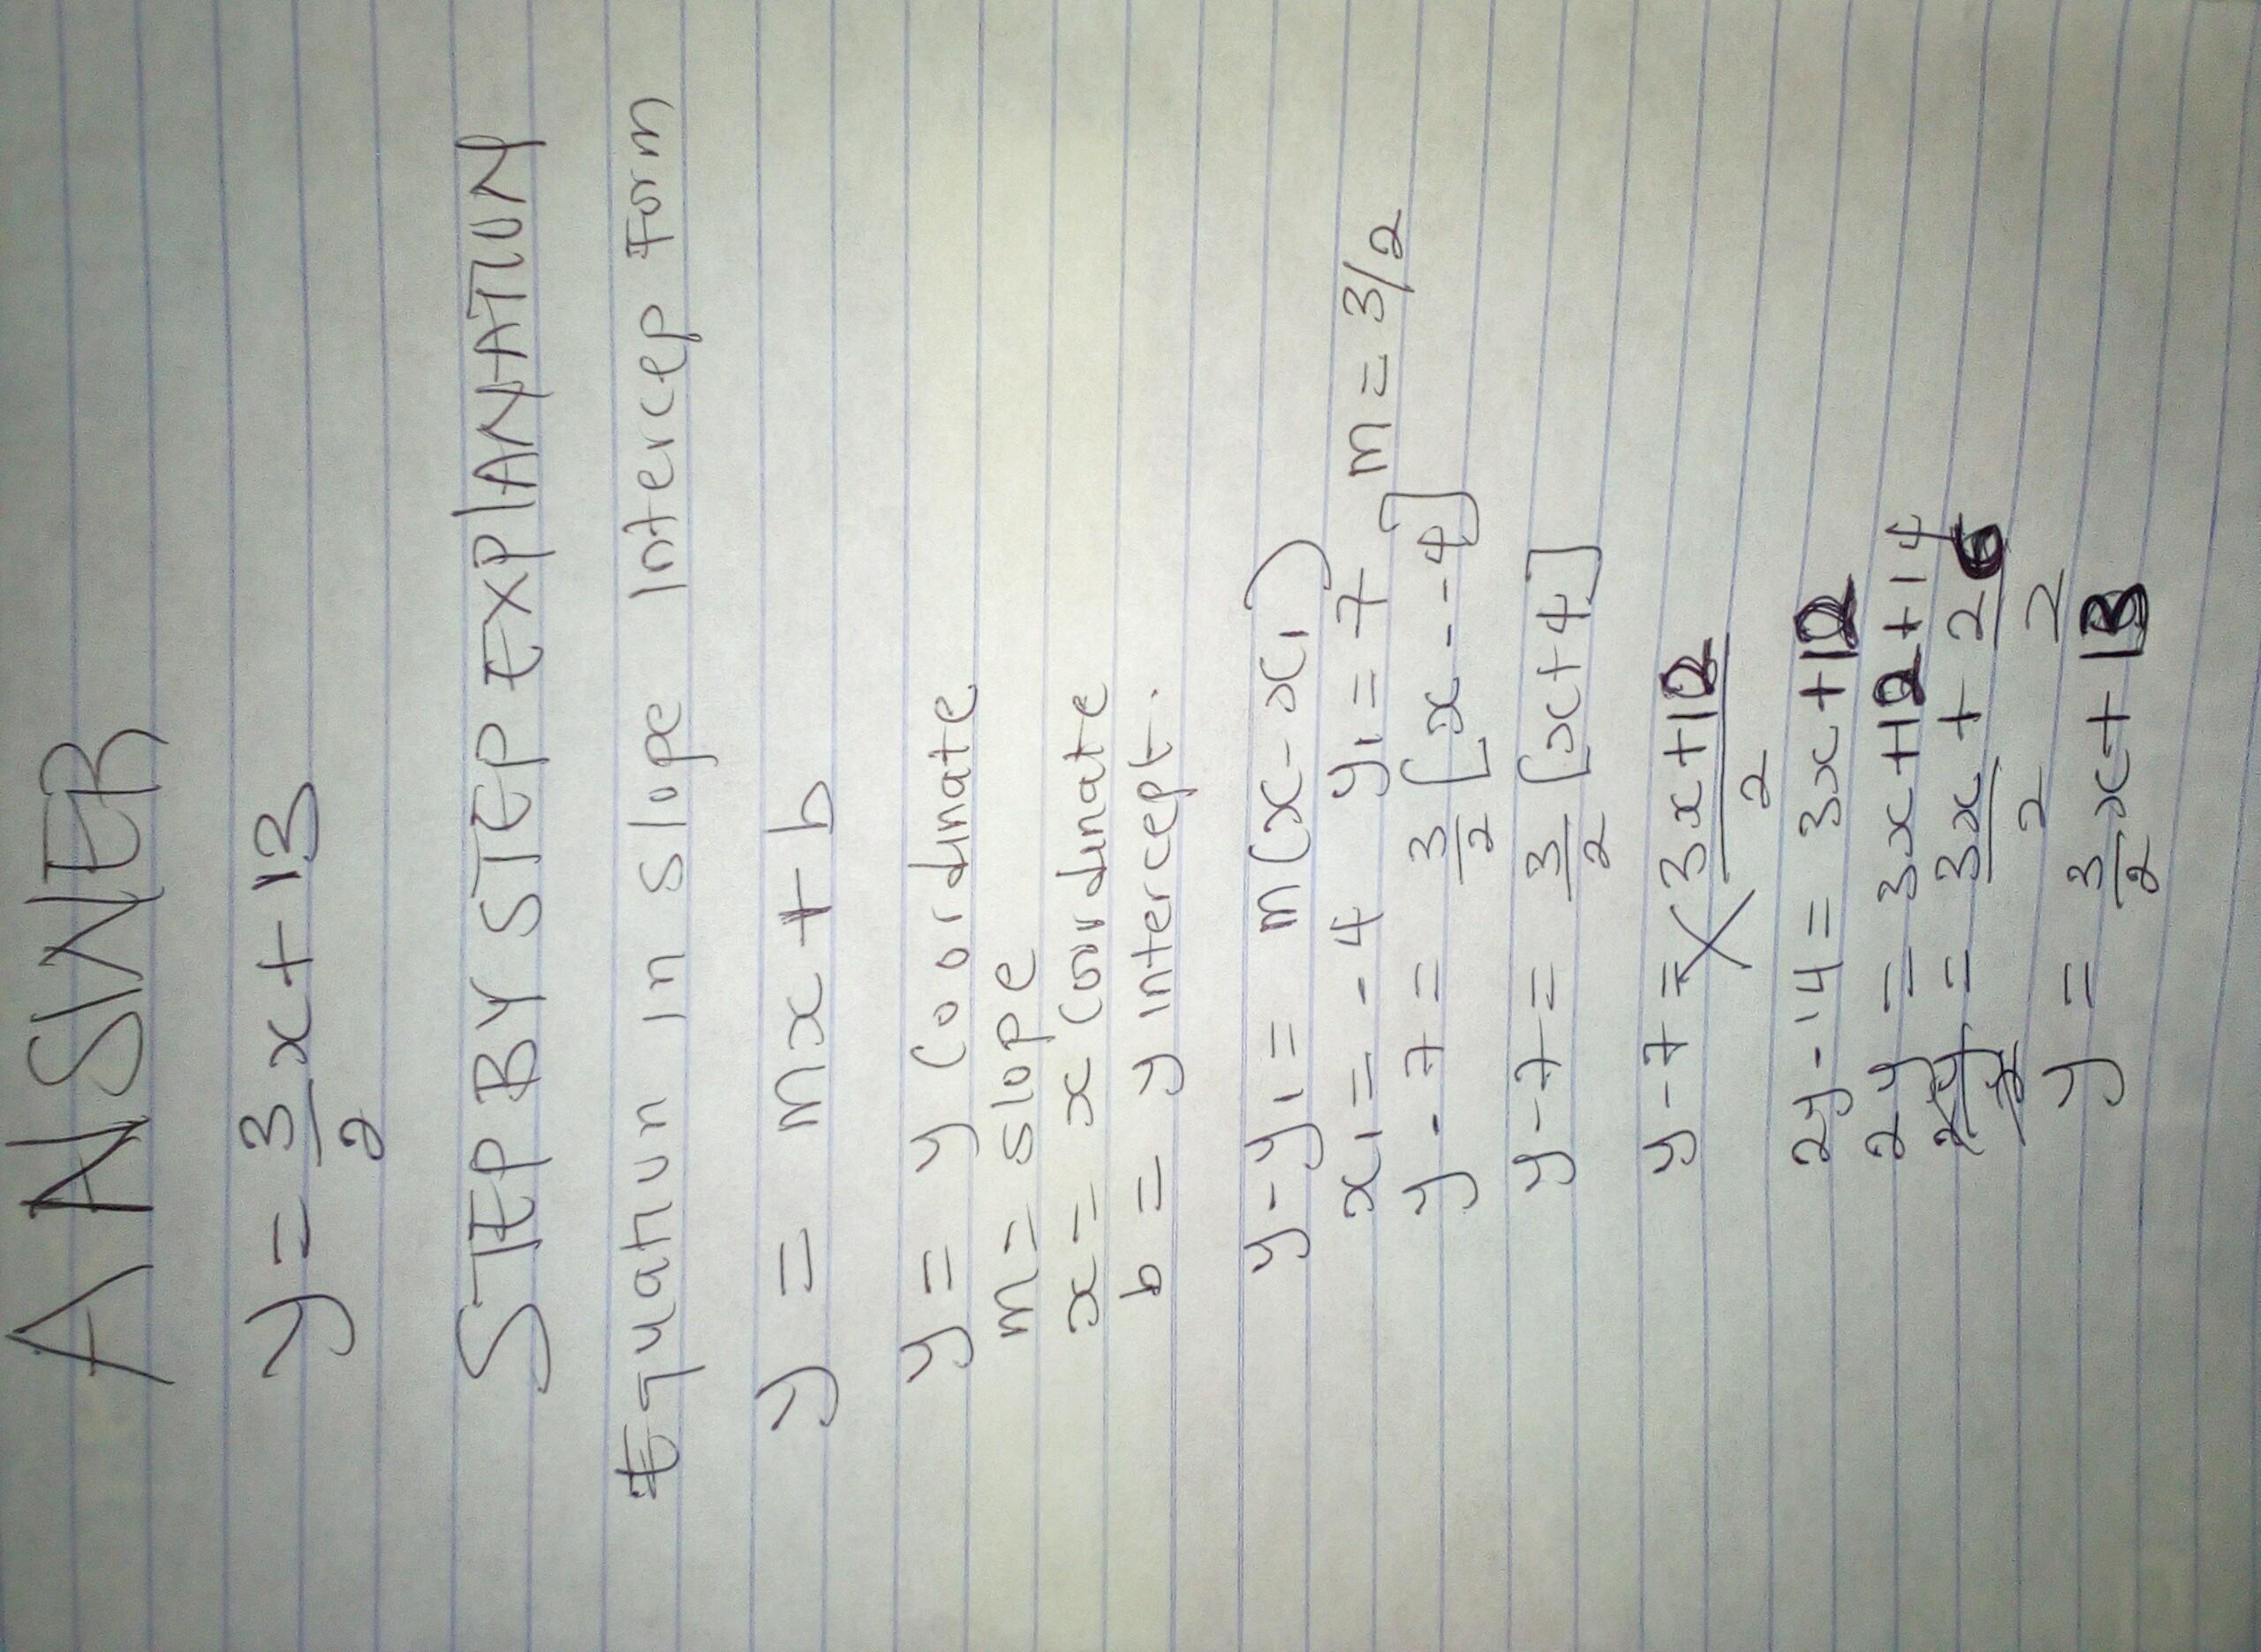 ANSWER
y = 3/2 x + 13
STEP BY STEP EXPLANATION
Equation in slope Intercep Form
y = mx + b
y = y coordinate
m = slope
x = x coordinate
b = y intercept.
y - y1 = m(x - x1)
x1 = -4 y1 = 7 m = 3/2
y - 7 = 3/2 [x - -4]
y - 7 = 3/2 [x + 4]
y - 7 = 3x + 12 / 2
2y - 14 = 3x + 12
2y = 3x + 12 + 14
2y/2 = 3x/2 + 26/2
y = 3/2 x + 13